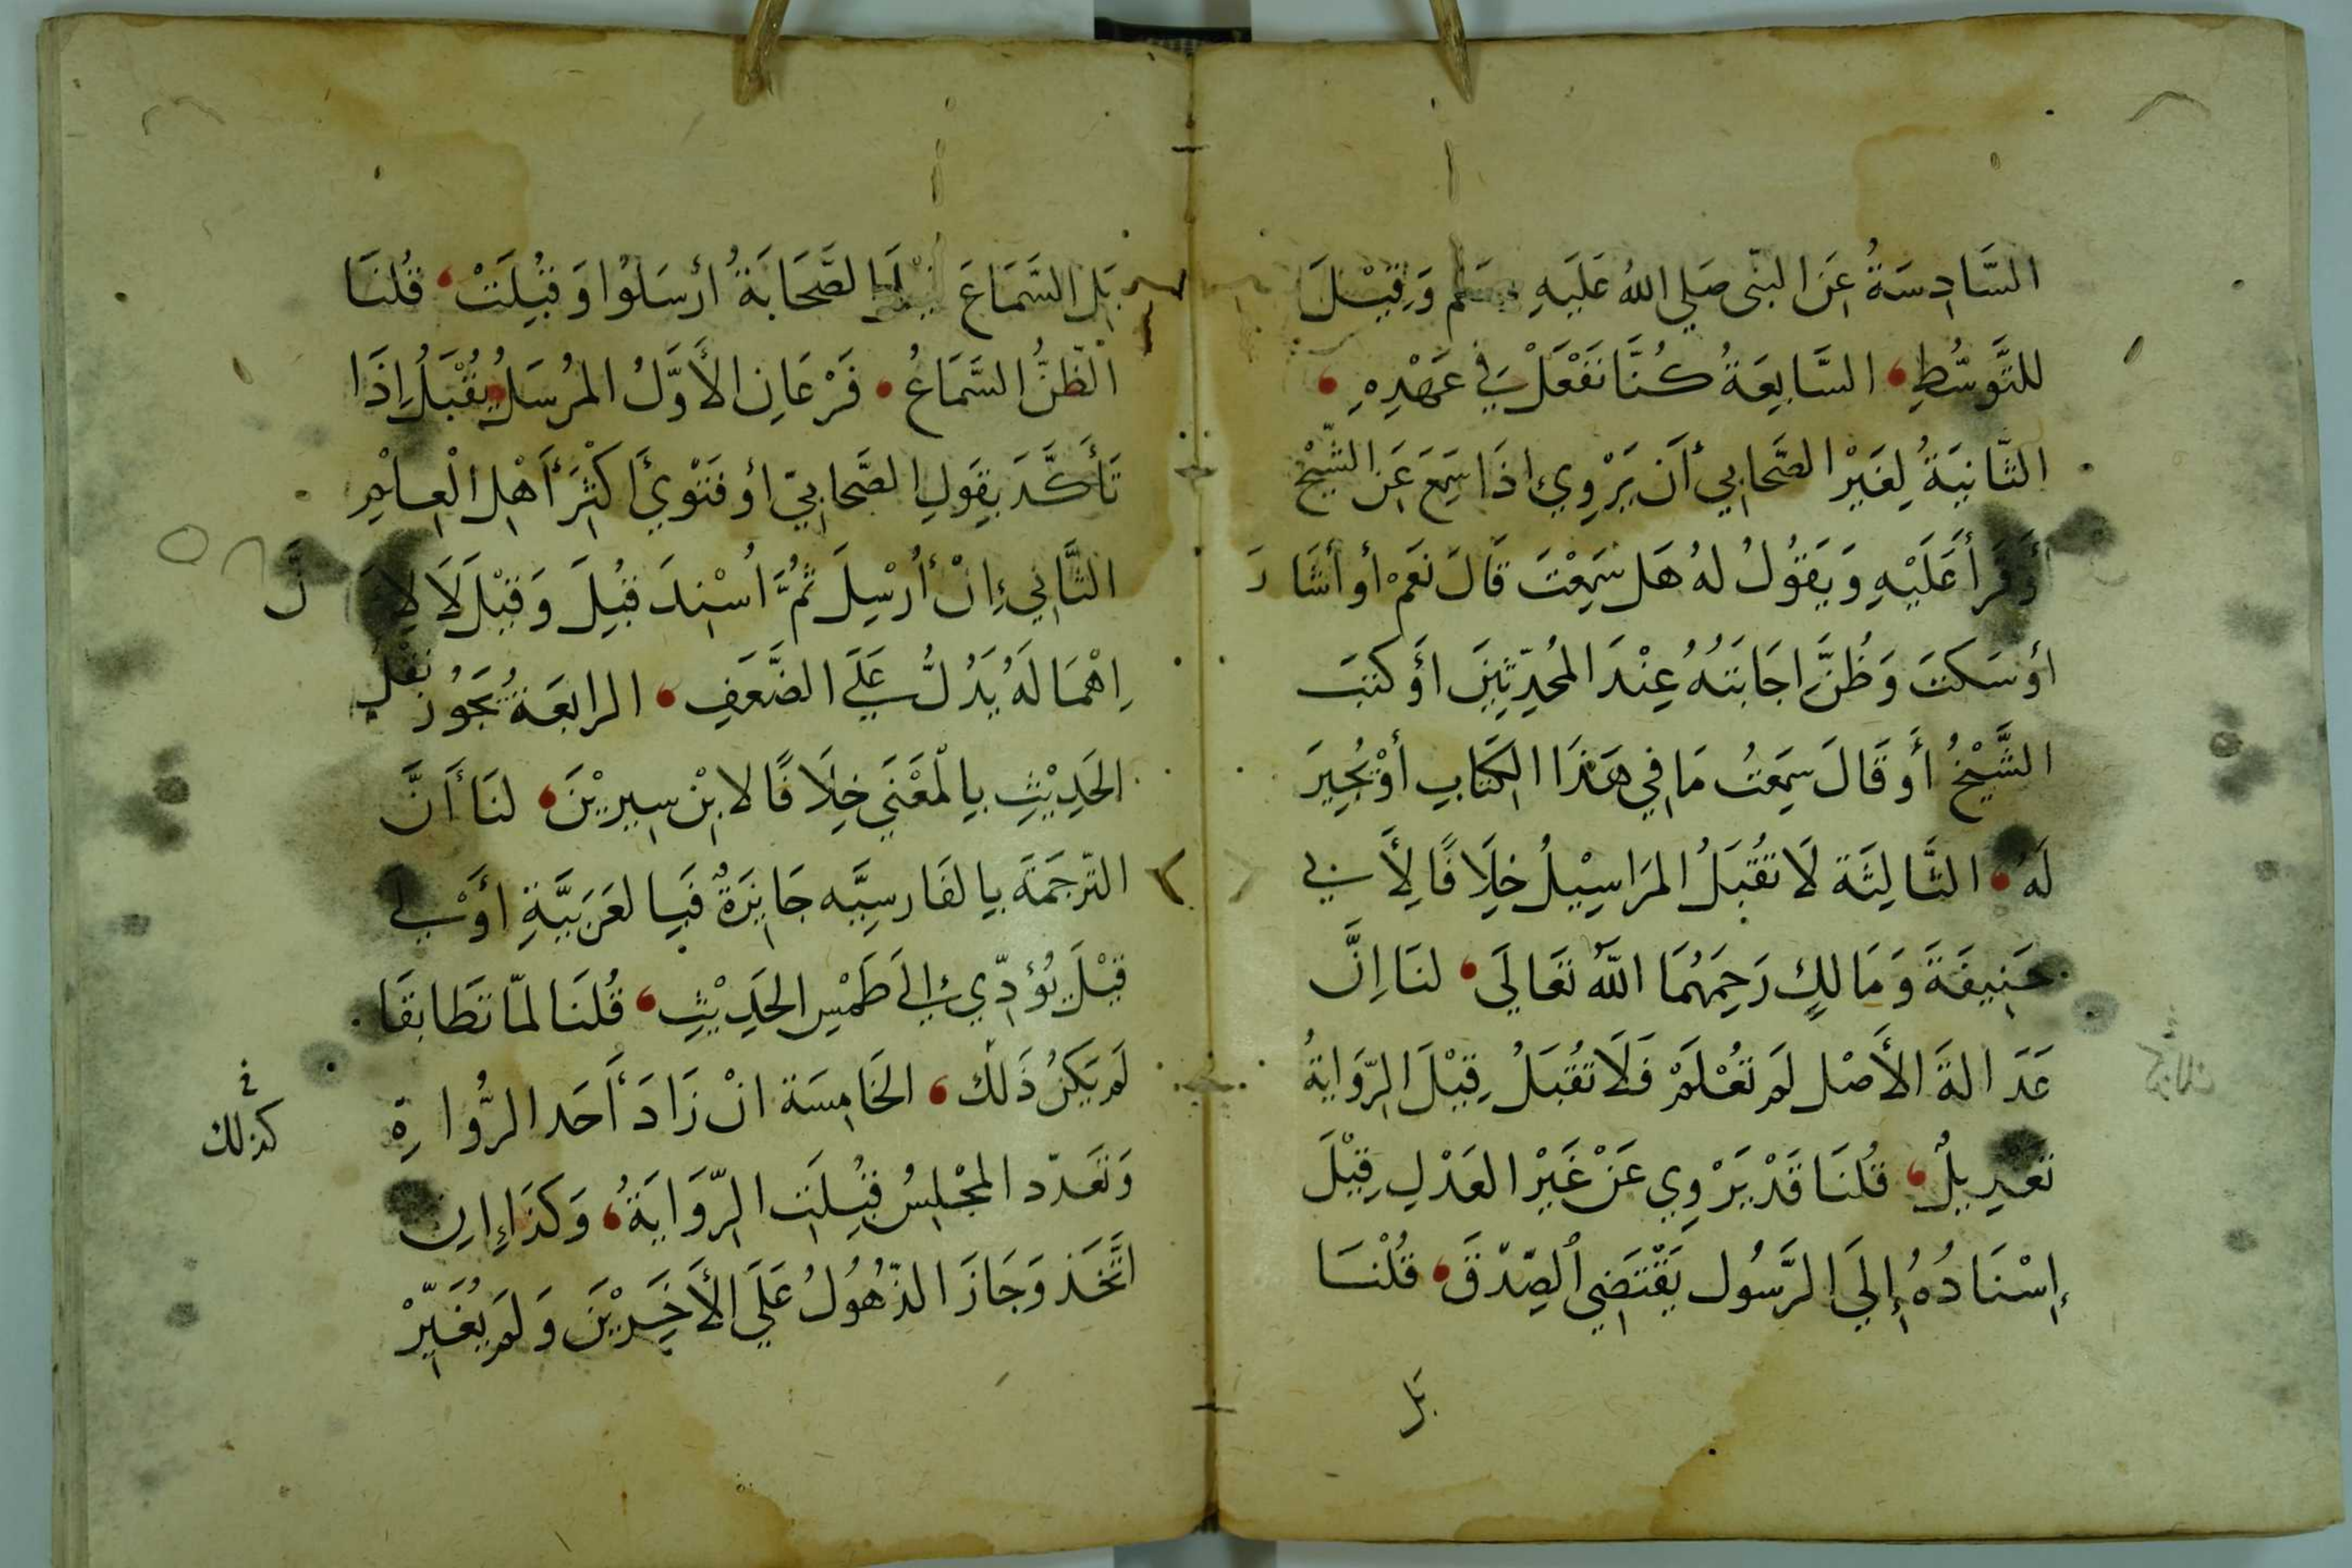 السَّادِسَةُ عَنِ النبّى صَلى اللهُ عَلَيهِ وسَلم وَقِيْلَ
للتَّوسُّطِ السَّابِعَةُ كُنَّا نَفْعَلُ فِي عَهْدِهِ
الثَّانيَةُ لِغَيْر الصَّحابي أَن يَرْوِيَ اذَا سَمِعَ عَنِ الشَّيْخ
أَوقَرأَ عَلَيْهِ وَيَقُولُ لهُ هَل سَمِعْتَ قَالَ نَعَمْ أو أشَارَ
اوْ سَكتَ وَظُنَّ اجَابَتهُ عِنْدَ المُحدِّثِينَ اوْ كتَبَ
الشَّيْخُ أَو قَالَ سَمِعتُ مَا في هَذَا الكَتابِ أوْ يُجِيزَ
لَهُ الثَّالِثَة لَا تُقْبَلُ المَرَاسِيْلُ خِلَافًا لِأَبي
حَنِيفَةَ وَمَالكٍ رَحِمَهُمَا اللّهُ تعَالَى لنَا اِنَّ
عَدَالةَ الأَصْل لَم تُعْلَمْ فَلَا تُقْبَلُ قِيْلَ الرِّوَايةُ
تَعْدِيلٌ قُلنَا قَدْ يَرْوِي عَنْ غَيْر العَدْلِ قِيْلَ
إِسْنَادُهُ إِلَى الرَّسُول يَقْتَضِي الصِّدْقَ قُلْنَا
بَل
بَل السَّمَاعَ الصَّحَابَةُ ارْسَلوُا وَقُبِلَتْ قُلنَا
الظَّنُّ السَّمَاعُ فَرْعَانِ الأَوَّلُ المُرْسَلُ يُقْبَلُ اِذَا
تَأَكَّدَ بِقَولِ الصَّحابيّ اوْ فَتْوى أَكْثَرِ أَهْلِ الْعِلْمِ
الثَّاني إِنْ أُرْسِلَ ثمَّ اُسْنِدَ قُبِلَ وَقيْلَ لَا لِأَنَّ
اِهْمَالَهُ يَدُلُّ عَلَى الضَّعَفِ الرابعَةُ يَجَوُز نَقْل
الحَدِيْثِ بِالْمَعْنَى خِلَافًا لابْن سِيريْنَ لنَا أَنَّ
التّرجَمَةَ بِالفَارسِيَّه جَايزَةٌ فَبِالعَرَبيَّةِ اوْلى
قِيْلَ يُؤدّي إلى طَمْسِ الحَدِيْثِ قُلنَا لمّا تَطَابقَا
لَم يَكنْ ذَلك الخَامِسَة انْ زَادَ أَحَد الرُّواةِ
في
كذلك
وَتعَدّد المجْلِسُ قُبِلَتِ الرِّوَايَةُ وَكذَا إِن
اتَّحَدَ وَجَازَ الذّهُولُ عَلَى الأَخَرِيْنَ وَلَم يُغَيِّرْ